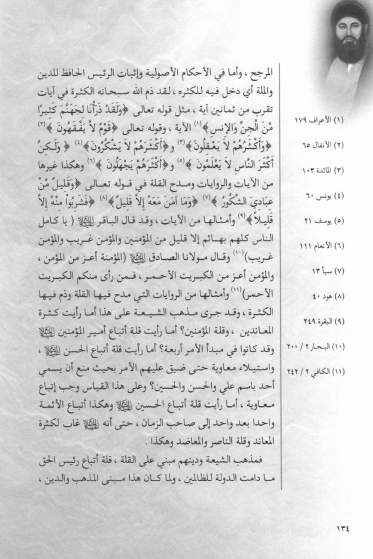 المرجح ، وأما في الأحكام الأصولية وإثبات الرئيس الحافظ للدين
والملة أي دخل فيه للكثره ، لقد ذم الله سبحانه الكثرة في آيات
تقرب من ثمانين آية ، مثل قوله تعالى ﴿وَلَقَدْ ذَرَأْنَا لِجَهَنَّمَ كَثِيرًا
مِّنَ الْجِنِّ وَالإِنسِ﴾(١) الآية ، وقوله تعالى ﴿قَوْمٌ لاَّ يَفْقَهُونَ﴾(٢)
﴿وَأَكْثَرُهُمْ لاَ يَعْقِلُونَ﴾(٣) و﴿أَكْثَرَهُمْ لاَ يَشْكُرُونَ﴾(٤) ﴿وَلَكِنَّ
أَكْثَرَ النَّاسِ لاَ يَعْلَمُونَ﴾(٥) و﴿أَكْثَرَهُمْ يَجْهَلُونَ﴾(٦) وهكذا غيرها
من الآيات والروايات ومدح القلة في قوله تعالى ﴿وَقَلِيلٌ مِّنْ
عِبَادِيَ الشَّكُورُ﴾(٧) ﴿وَمَا آمَنَ مَعَهُ إِلاَّ قَلِيلٌ﴾(٨) ﴿فَشَرِبُواْ مِنْهُ إِلاَّ
قَلِيلاً﴾(٩) وأمثالها من الآيات ، وقد قال الباقر ﵇ (يا كامل
الناس كلهم بهائم إلا قليل من المؤمنين والمؤمن غريب والمؤمن
غريب)(١٠) وقال مولانا الصادق ﵇ (المؤمنة أعز من المؤمن ،
والمؤمن أعز من الكبريت الأحمر ، فمن رأى منكم الكبريت
الأحمر)(١١) وأمثالها من الروايات التي مدح فيها القلة وذم فيها
الكثرة ، وقد جرى مذهب الشيعة على هذا أما رأيت كثرة
المعاندين ، وقلة المؤمنين؟ أما رأيت قلة أتباع أمير المؤمنين ﵇
وقد كانوا في مبدأ الأمر أربعة؟ أما رأيت قلة أتباع الحسن ﵇ ،
واستيلاء معاوية حتى ضيق عليهم الأمر بحيث منع أن يسمي
أحد باسم علي والحسن والحسين؟ وعلى هذا القياس وجب إتباع
معاوية ، أما رأيت قلة أتباع الحسين ﵇ وهكذا أتباع الأئمة
واحدا بعد واحد إلى صاحب الزمان ، حتى أنه ﵇ غاب لكثرة
المعاند وقلة الناصر والمعاضد وهكذا .
فمذهب الشيعة ودينهم مبني على القلة ، قلة أتباع رئيس الحق
ما دامت الدولة للظالمين ، ولما كان هذا مبنى المذهب والدين ،
(١) الأعراف ١٧٩
(٢) الأنفال ٦٥
(٣) المائدة ١٠٣
(٤) يونس ٦٠
(٥) يوسف ٢١
(٦) الأنعام ١١١
(٧) سبأ ١٣
(٨) هود ٤٠
(٩) البقرة ٢٤٩
(١٠) البحار ٢ / ٢٠٠
(١١) الكافي ٢ / ٢٤٢
١٣٤